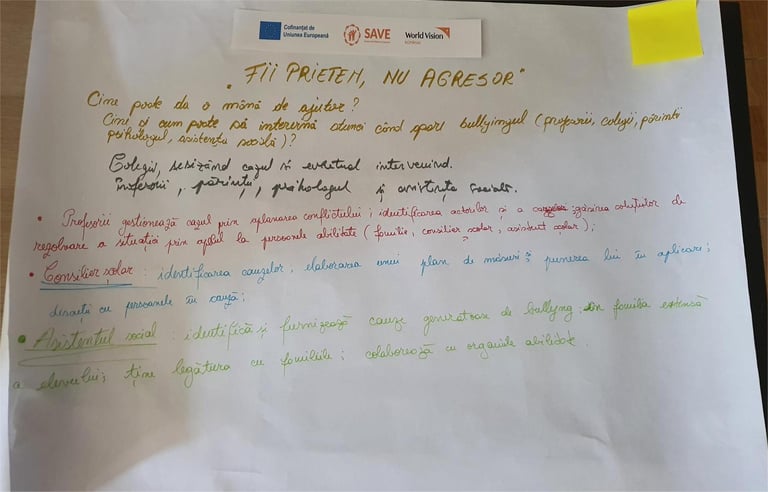 Cofinanțat de
Uniunea Europeană
SAVE
World Vision
ROMÂNIA
„FII PRIETEN, NU AGRESOR"
Cine poate da o mână de ajutor?
Cine și cum poate să intervină atunci când apare bullyingul (profesorii, colegii, părinții
psihologul, asistența socială)?
Colegii, sesizând cazul și eventual intervenind.
părinții, psihologul și asistența socială.
• Profesorii gestionează cazul prin aplanarea conflictului; identificarea actorilor și a găsirea soluțiilor de
rezolvare a situației prin apelul la persoanele abilitate (familie, consilier școlar, asistent școlar);
• Consilier școlar: identificarea cauzelor; elaborarea unui plan de măsuri; punerea lui în aplicare;
discuții cu persoanele în cauză;
• Asistentul social: identifică și furnizează cauze generatoare de bullyng din familia extinsă
a elevului; ține legătura cu familiile; colaborează cu organele abilitate.